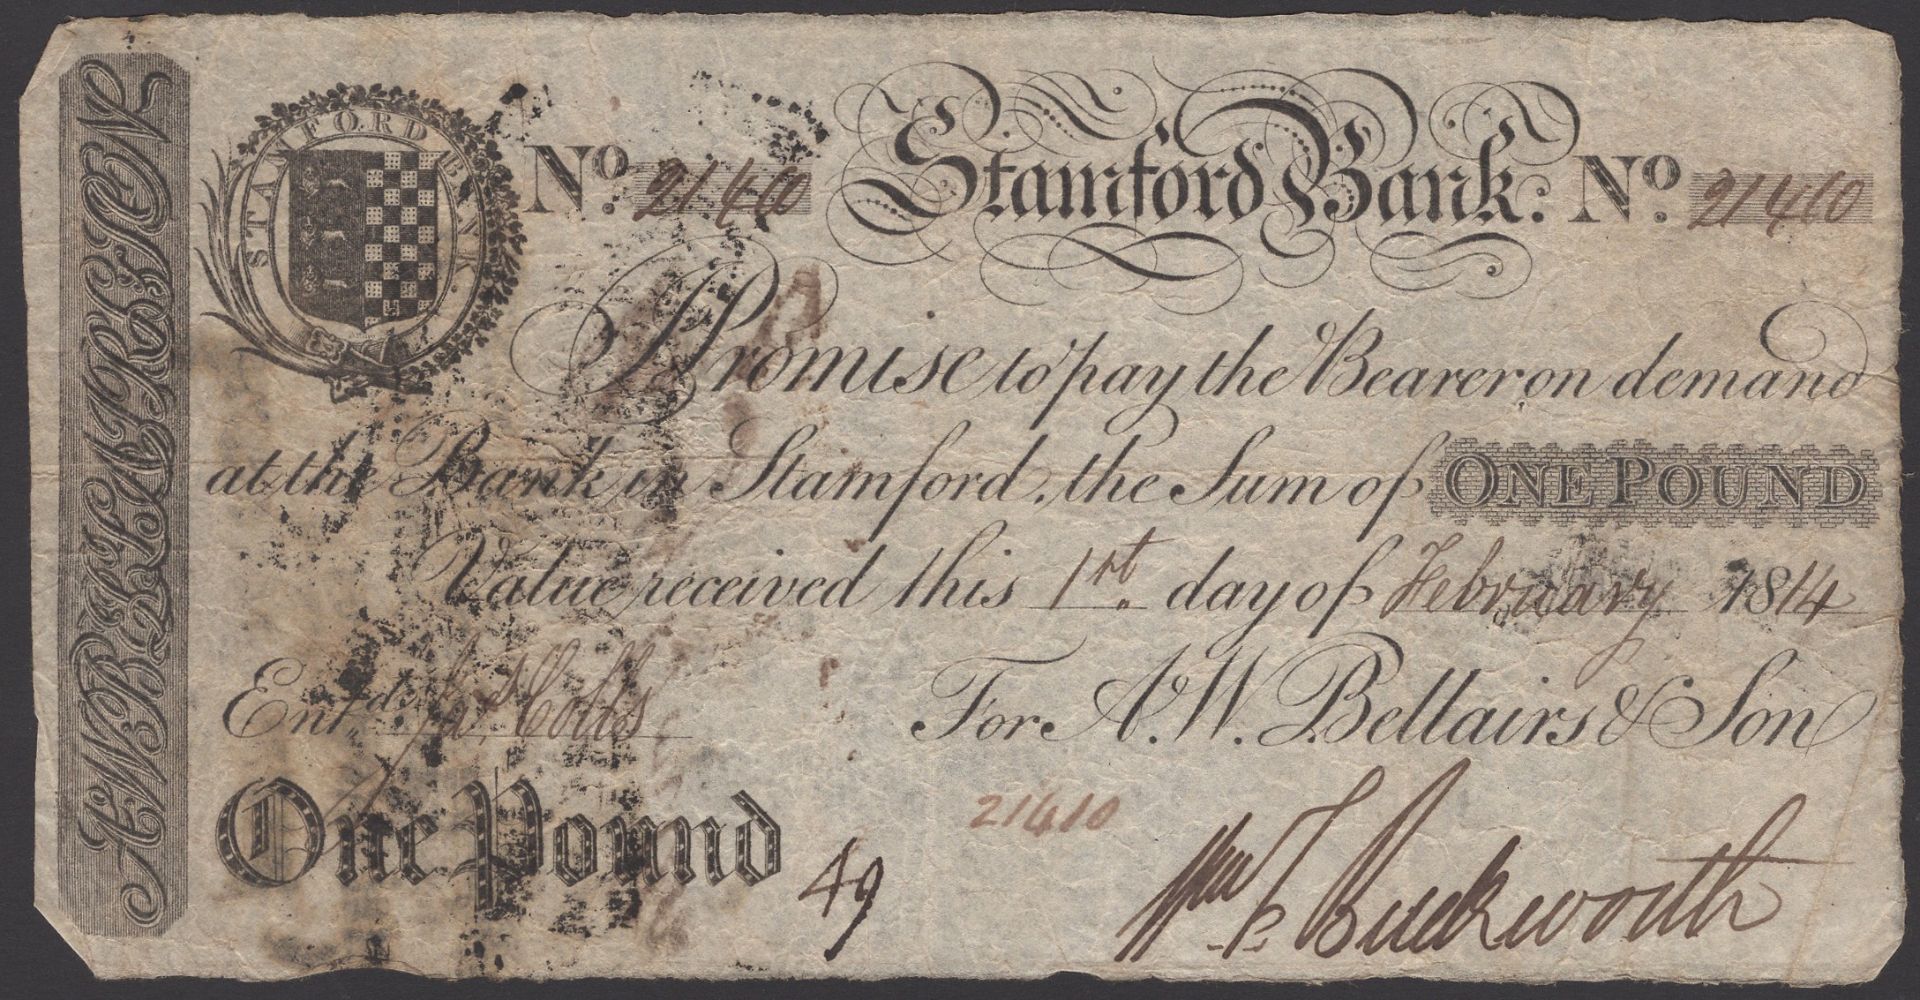 AWBELLAIRS & SON
STAMFORD BANK
No. 21410 Stamford Bank. No. 21410
I Promise to pay the Bearer on demand
at the Bank in Stamford, the Sum of ONE POUND
Value received this 1st. day of February 1814
Entd. Jas. Cobbs
For A.W. Bellairs & Son
One Pound
49
21410
Wm F Buckworth